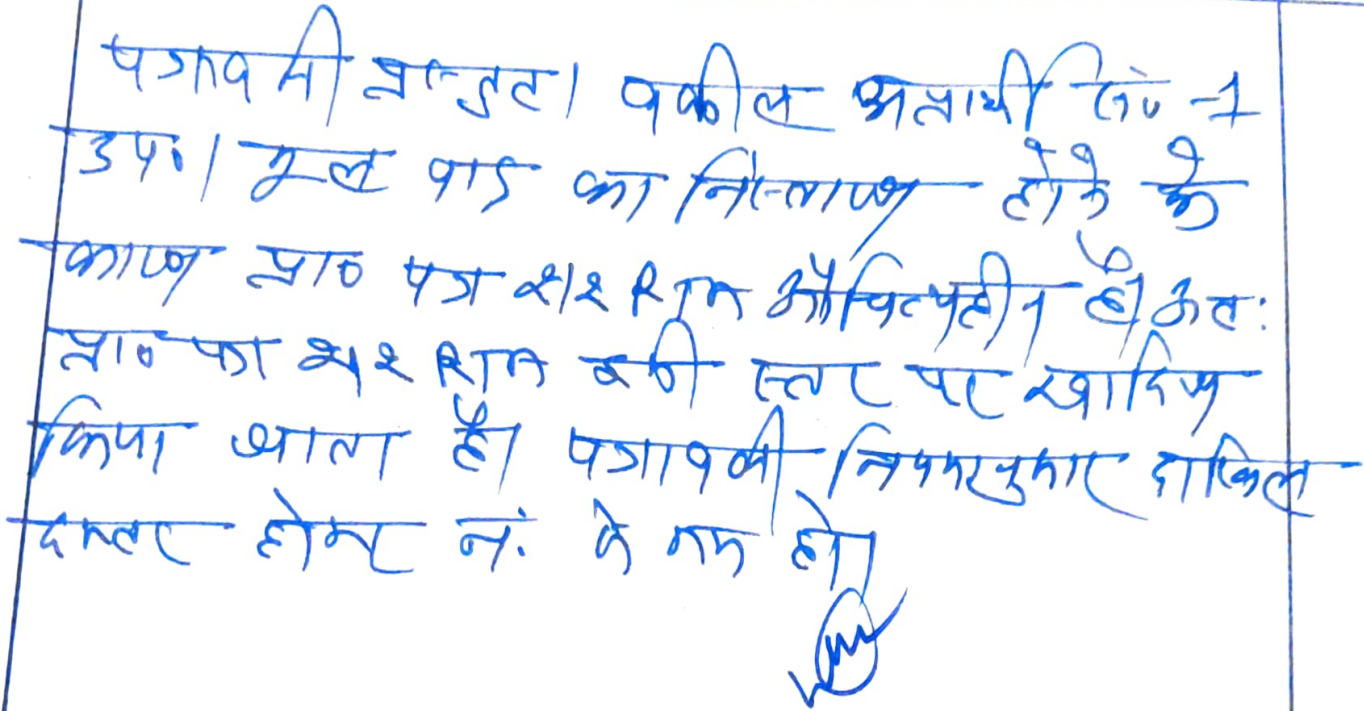 पत्रावली प्रस्तुत। वकील अप्रार्थी सं० -1
उप०। मूल वाद का निस्तारण होने के
कारण प्रा० पत्र 212 RTA औचित्यहीन है। अतः
प्रा० पत्र 212 RTA इसी स्तर पर खारिज
किया जाता है। पत्रावली नियमानुसार दाखिल
दफ्तर होकर नं. से कम हो।